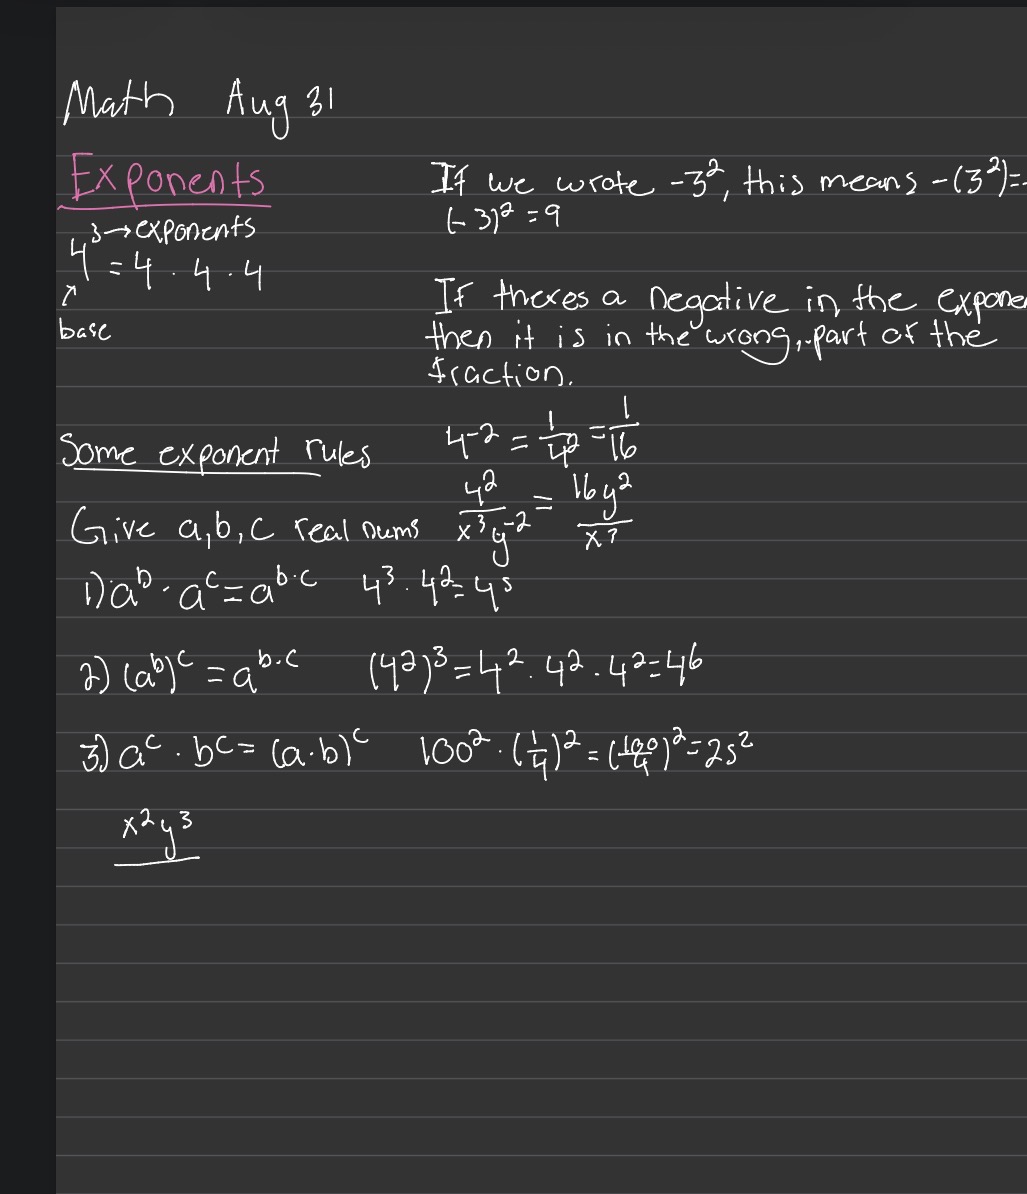 Math Aug 31
Exponents
4³→exponents
= 4 · 4 · 4
↑
base
If we wrote -3², this means -(3²)=-
(-3)² = 9
If theres a negative in the expone
then it is in the wrong part of the
fraction.
4⁻² = 1/4² = 1/16
4²/x³y⁻² = 16y²/x³
Some exponent rules
Give a,b,c real nums
1) aᵇ · aᶜ = aᵇ·ᶜ 4³ · 4² = 4⁵
2) (aᵇ)ᶜ = aᵇ·ᶜ (4²)³ = 4² · 4² · 4² = 4⁶
3) aᶜ · bᶜ = (a·b)ᶜ 100² · (1/4)² = (100/4)² = 25²
x²y³